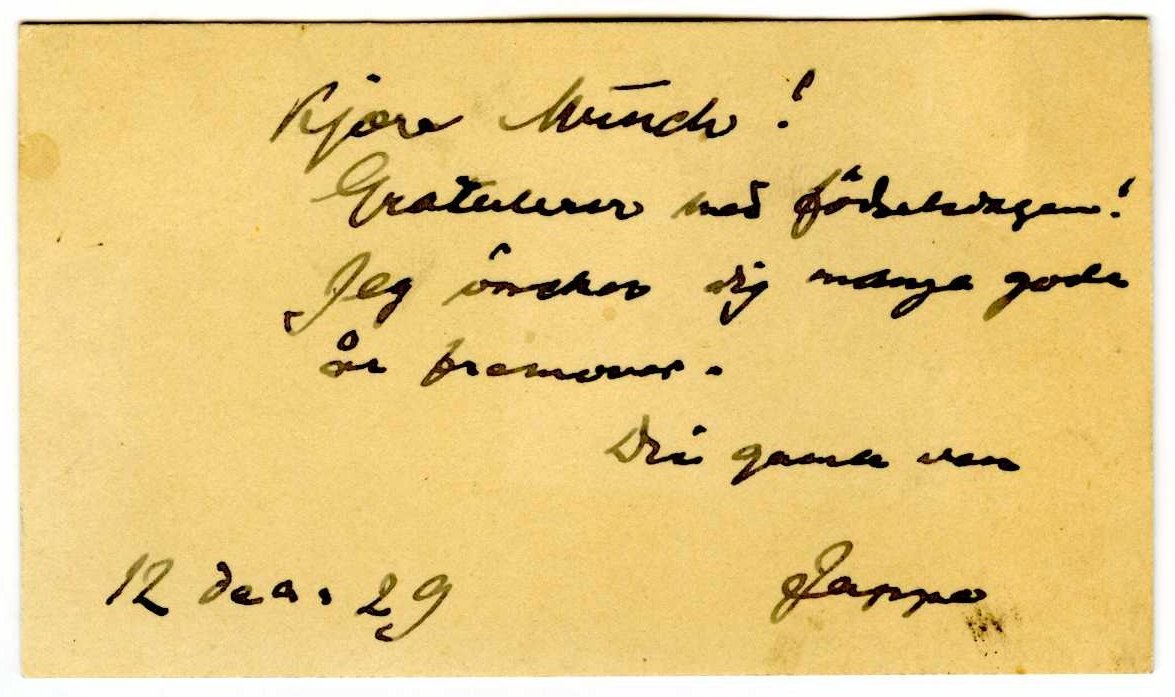 Kjære Munch!
Gratulerer med födselsdagen!
Jeg önsker dig mange gode
år fremover.
Din gamle ven
12 dec. 29 Jappe